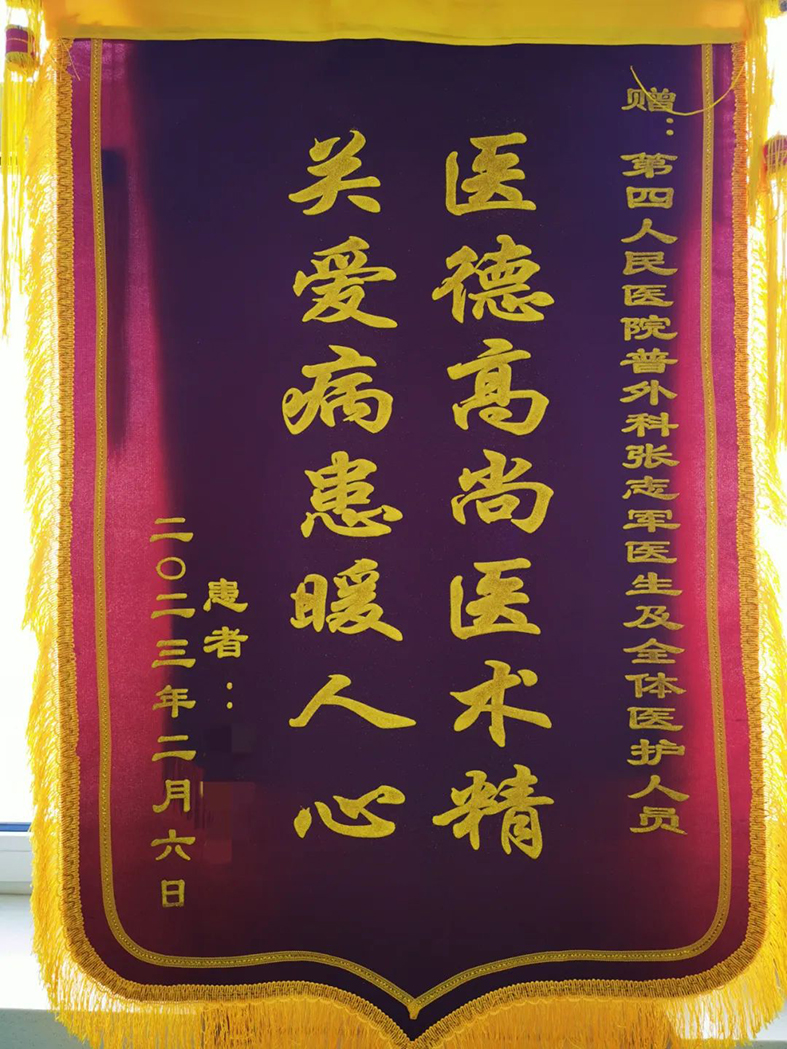 赠：第四人民医院普外科张志军医生及全体医护人员
医德高尚医术精
关爱病患暖人心
患者：
二〇二三年二月六日